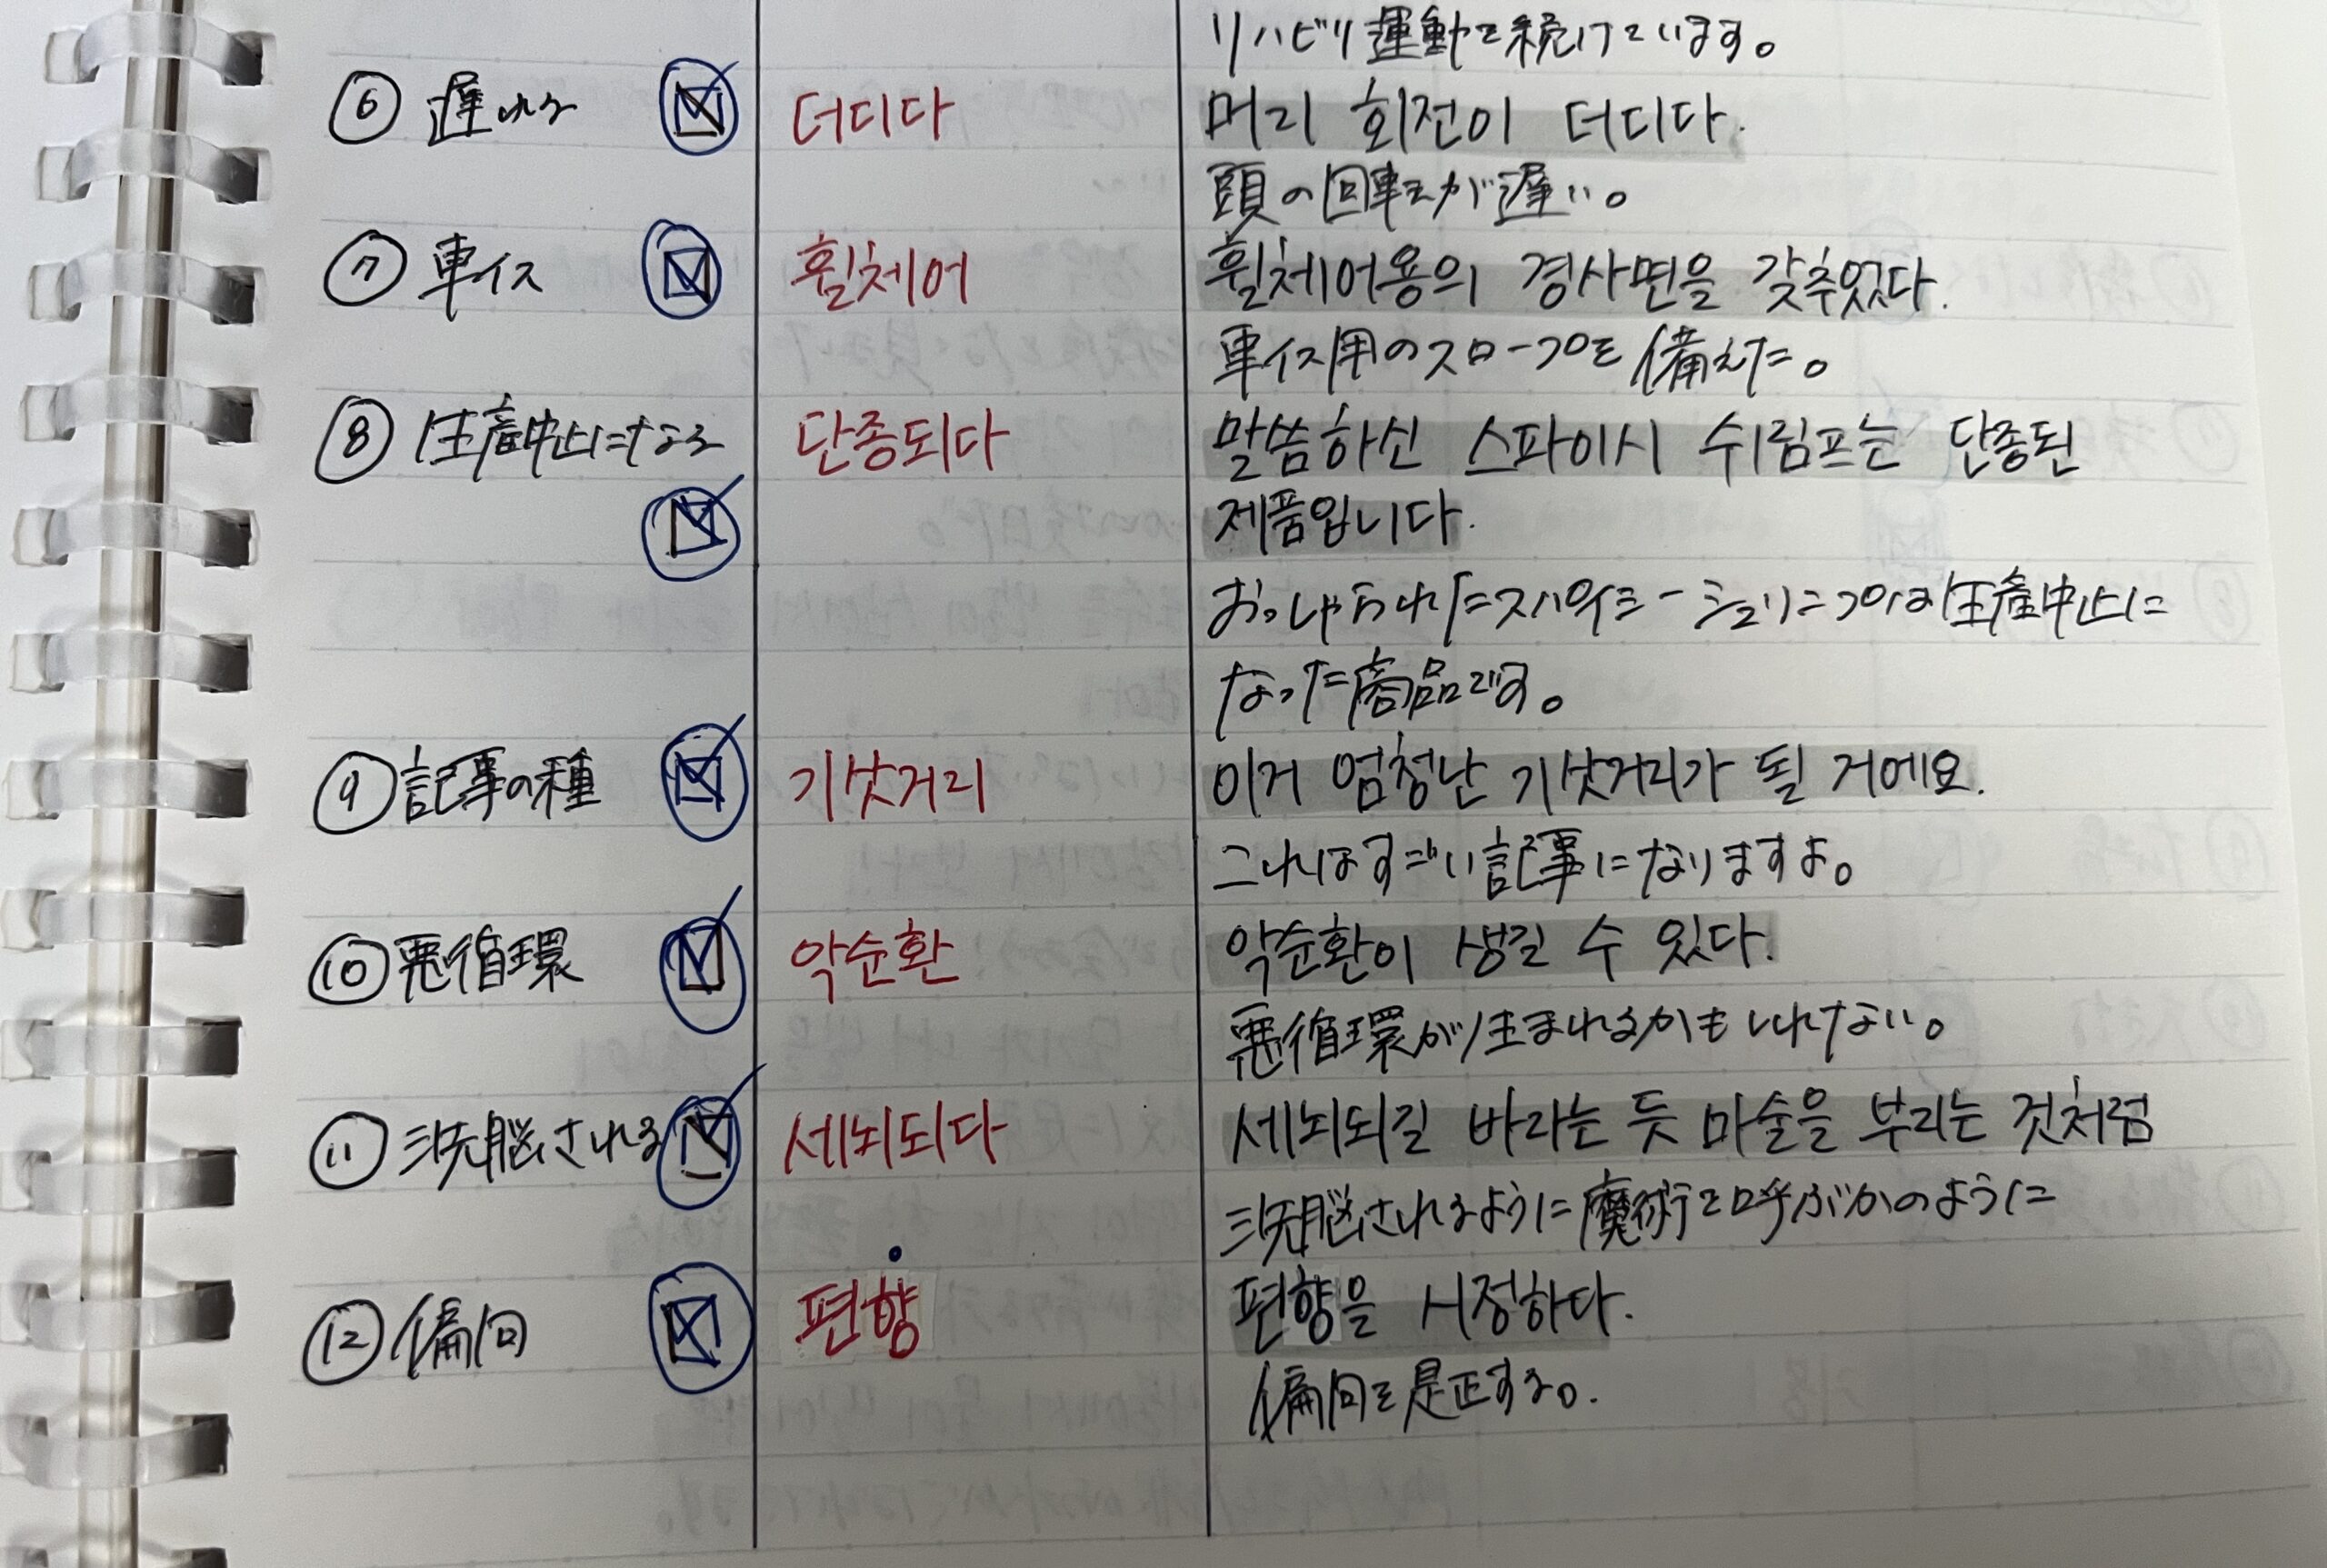 リハビリ運動を続けています。
⑥ 遅れる 더디다 머리 회전이 더디다.
頭の回転が遅い。
⑦ 車イス 휠체어 휠체어용의 경사면을 갖추었다.
車イス用のスロープを備えた。
⑧ 生産中止になる 단종되다 말씀하신 스파이시 쉬림프는 단종된
제품입니다.
おっしゃられたスパイシーシュリンプは生産中止に
なった商品です。
⑨ 記事の種 기삿거리 이거 엄청난 기삿거리가 될 거에요.
これはすごい記事になりますよ。
⑩ 悪循環 악순환 악순환이 생길 수 있다.
悪循環が生まれるかもしれない。
⑪ 洗脳される 세뇌되다 세뇌되길 바라는 듯 마술을 부리는 것처럼
洗脳されるように魔術を呼ぶかのように
⑫ 偏向 편향 편향을 시정하다.
偏向を是正する。